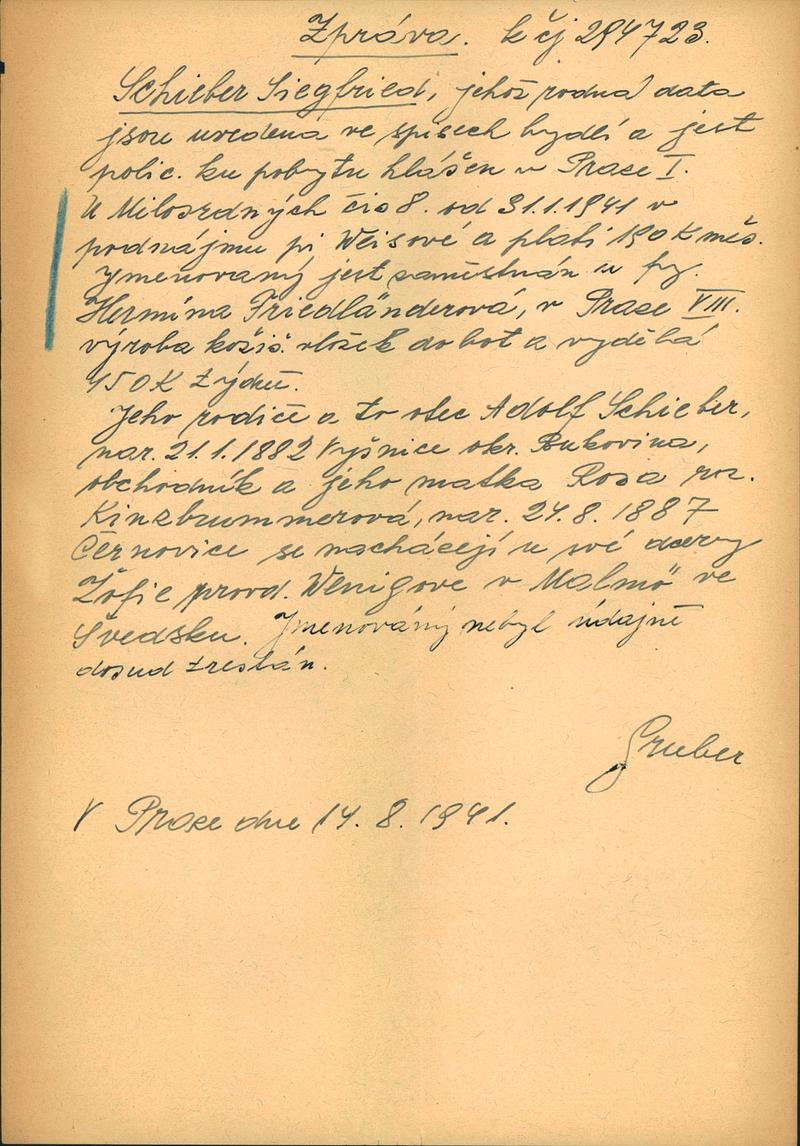 Zpráva. k čj 294723.
Schieber Siegfried, jehož rodná data
jsou uvedena ve spisech bydlí a jest
polic. ku pobytu hlášen v Praze I.
U Milosrdných čís 8. od 31.1.1941 v
podnájmu při Weisové a platí 190 K měs.
Jmenovaný jest zaměstnán u fy.
Hermína Friedländerová, v Praze VIII.
výroba kožiš. vložek do bot a vydělá
450K týdně.
Jeho rodiče a to otec Adolf Schieber,
nar. 21.1.1882 Vyšnice okr. Bukovina,
obchodník a jeho matka Rosa roz.
Kinzbrummerová, nar. 24.8.1887
Černovice se nacházejí u své dcery
Žofie provd. Wenigove v Malmö ve
Švedsku. Jmenováný nebyl údajně
dosud trestán.
Gruber
V Praze dne 14. 8. 1941.